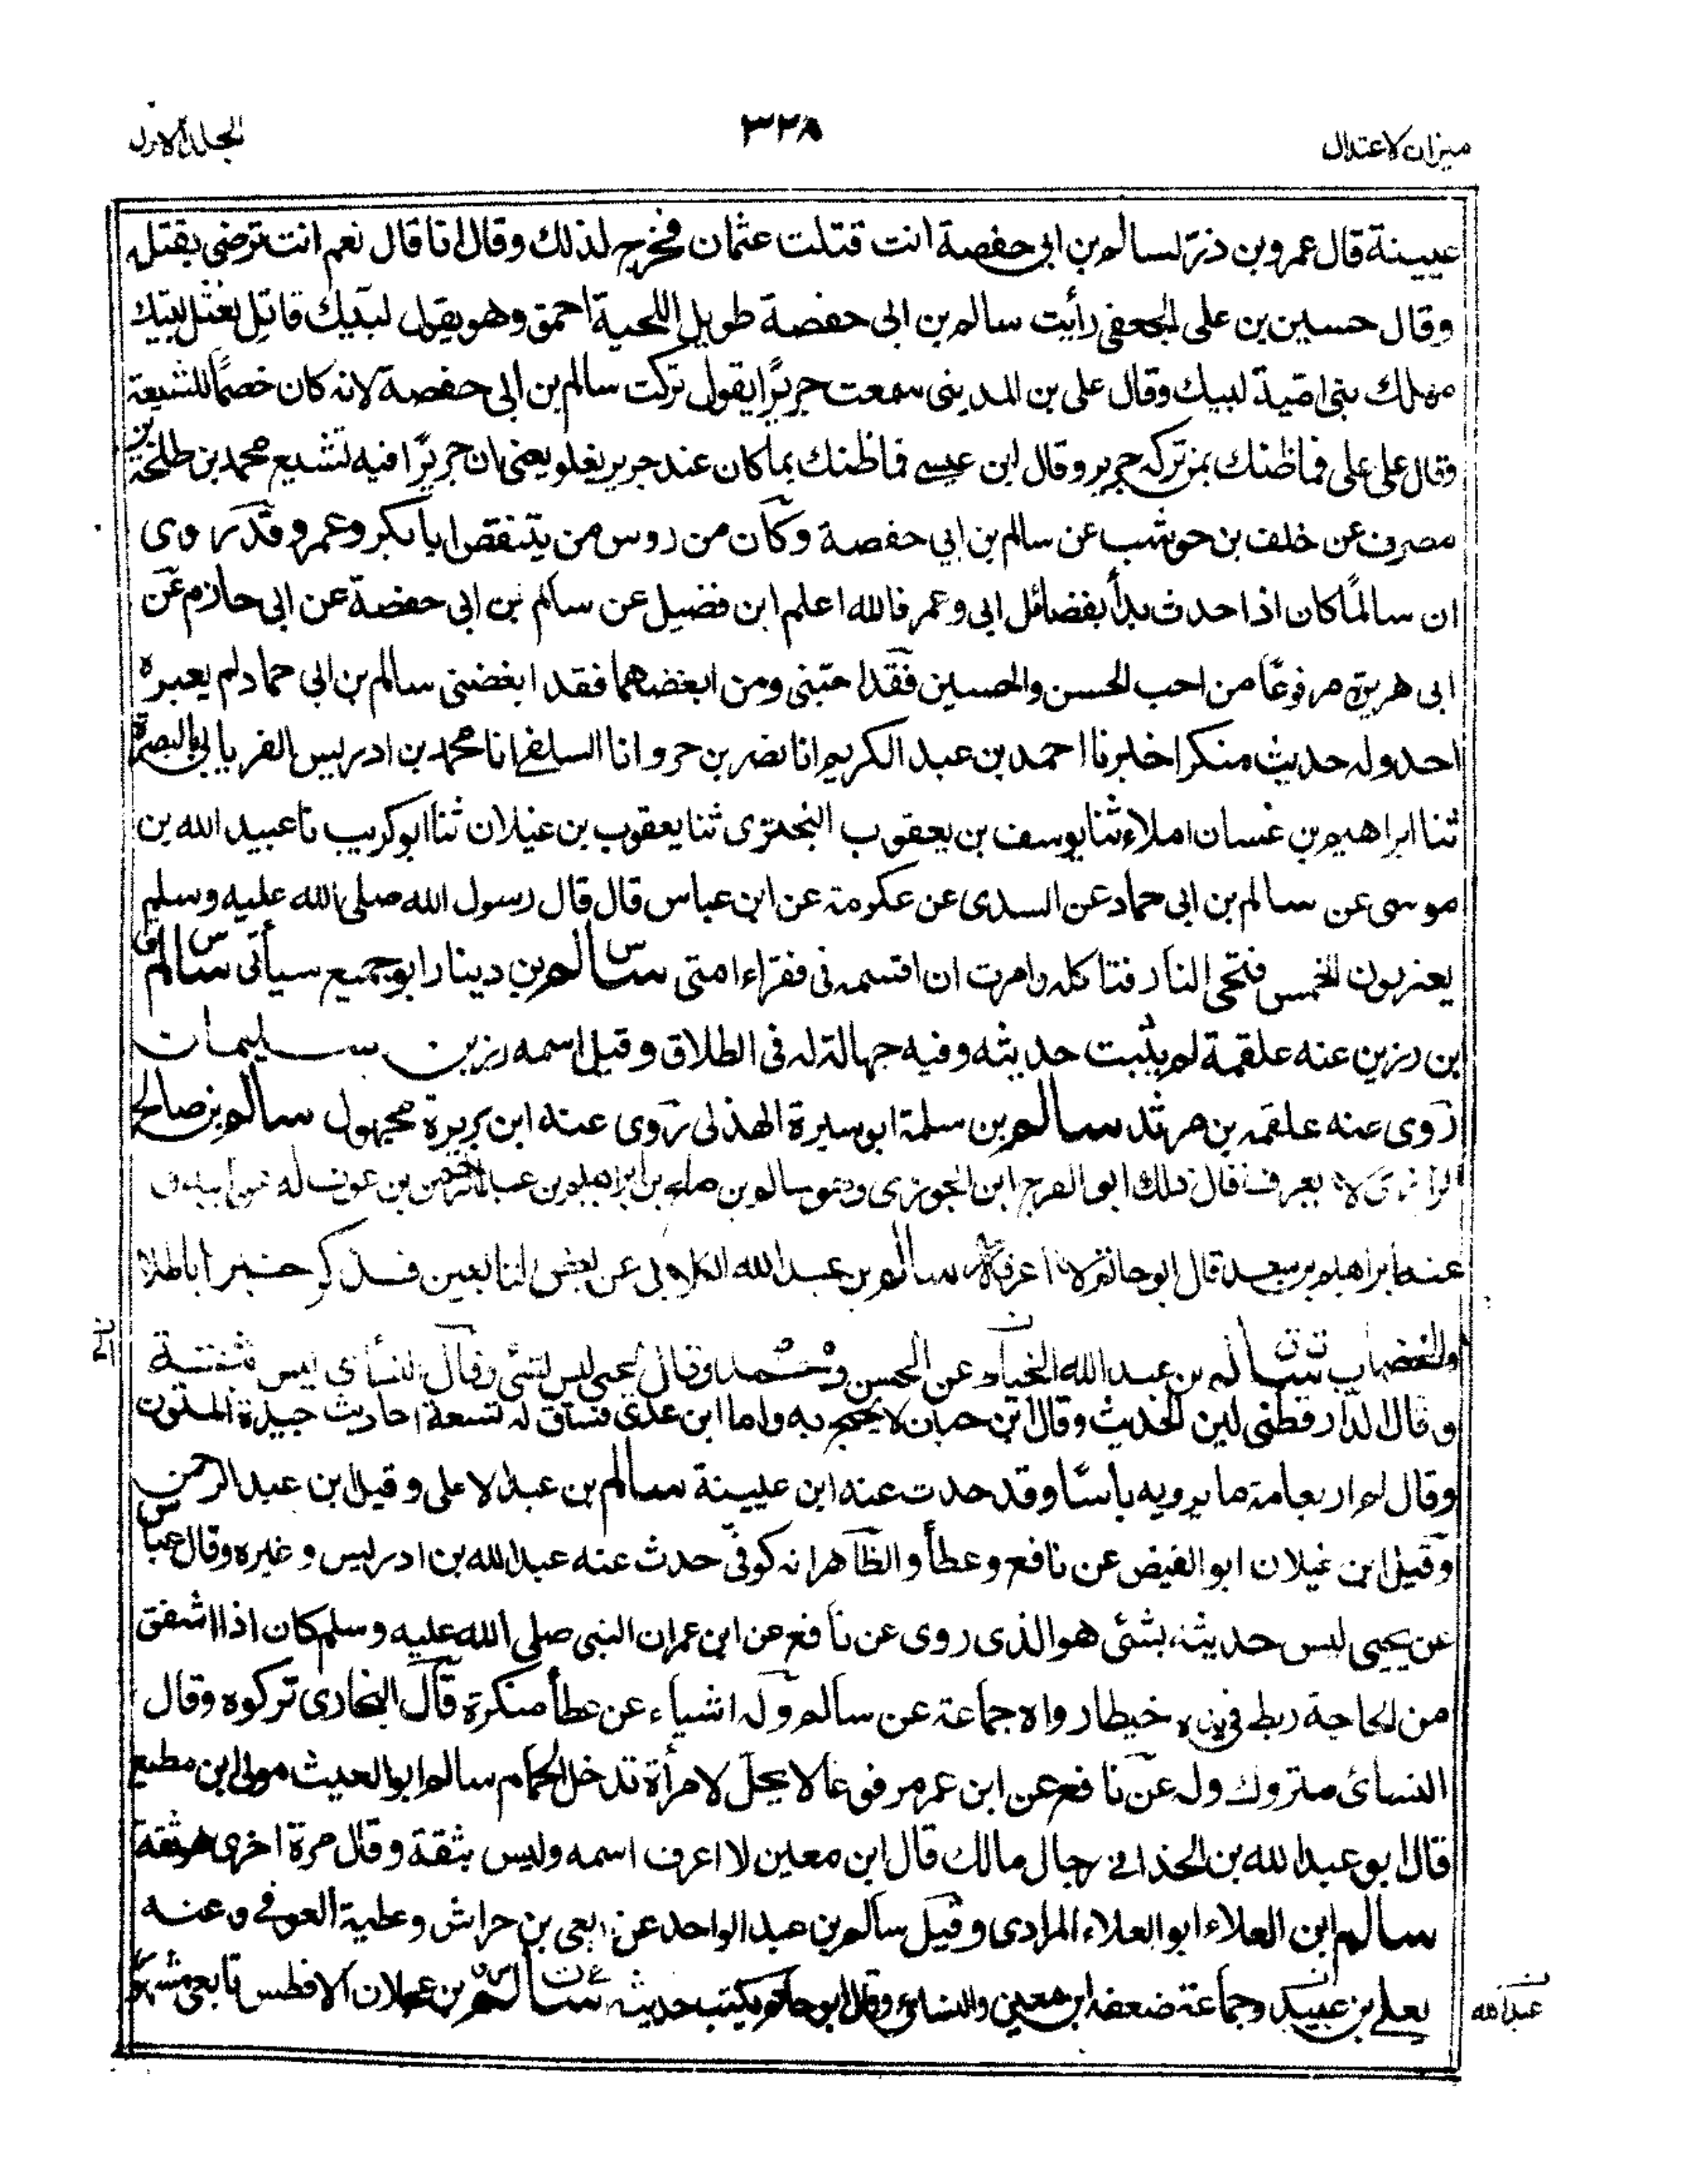 ميزان الاعتدال
٣٢٨
المجلد الاول
عيينة قال عمرو بن ذر لسالم بن ابى حفصة انت قتلت عثمان فخرج لذلك وقال انا قال نعم انت ترضى بقتله
وقال حسين بن على الجعفى رأيت سالم بن ابى حفصة طويل اللحية احمق وهو يقول لبيك قاتل نعثل لبيك
مهلك بنى امية لبيك وقال على بن المدينى سمعت جريرًا يقول تركت سالم بن ابى حفصة لانه كان خصمًا للشيعة
وقال على على فما ظنك بمن تركه جرير وقال ابن عيسى فما ظنك بما كان عند جرير يغلو يعنى ان جريرًا فيه تشيع محمد بن طلحة بن
مصرف عن خلف بن حوشب عن سالم بن ابي حفصة وكان من روس من يتنقص ابا بكر وعمر وقد روى
ان سالمًا كان اذا حدث بدأ بفضائل ابى وعمر فالله اعلم ابن فضيل عن سالم بن ابى حفصة عن ابى حازم عن
ابى هريرة مرفوعًا من احب الحسن والحسين فقد احبنى ومن ابغضهما فقد ابغضنى سالم بن ابى حماد لم يعبره
احد وله حديث منكر اخبرنا احمد بن عبد الكريم انا نصر بن جرو انا السلفى انا محمد بن ادريس الفريابى بالبصرة
ثنا ابراهيم بن غسان املاء ثنا يوسف بن يعقوب النجترى ثنا يعقوب بن غيلان ثنا ابو كريب نا عبيد الله بن
موسى عن سالم بن ابى حماد عن السدى عن عكرمة عن ابن عباس قال قال رسول الله صلى الله عليه وسلم
يعزبون الخمس فتجى النار فتاكله وامرت ان اقسمه فى فقراء امتى سالم بن دينار ابو جميع سيأتى سالم
بن رزين عنه علقمة لم يثبت حديثه وفيه جهالة له فى الطلاق وقيل اسمه رزين بن سليمان
روى عنه علقمه بن مرثد سالم بن سلمة ابو سبرة الهذلى روى عنه ابن بريدة مجهول سالم بن صالح
لا يعرف قال ذلك ابو الفرج ابن الجوزى وهو سالم بن صالح بن ابراهيم بن عبد الرحمن بن عوف له عن ابيه وى
عنه ابراهيم بن سعد قال ابو حاتم لا اعرفه سالم بن عبد الله الكلابى عن بعض التابعين فذكر خبرا باطلا
سالم بن عبد الله الخياط عن الحسن ومحمد وقال يحيى ليس بشئ وقال النسأى ليس بثقة
وقال الدارقطنى لين الحديث وقال ابن حبان لا يحتج به واما ابن عدى فساق له تسعة احاديث جيدة المتون
وقال لم ار بعامة ما يرويه باسًا وقد حدث عنه ابن عيينة سالم بن عبد الاعلى وقيل ابن عبد الرحمن
وقيل ابن غيلان ابو الفيض عن نافع وعطأ والظاهر انه كوفى حدث عنه عبد الله بن ادريس وغيره وقال عباس
عن يحيى ليس حديثه بشئى هو الذى روى عن نافع عن ابن عمر ان النبى صلى الله عليه وسلم كان اذا اشفق
من الحاجة ربط فى يده خيطا رواه جماعة عن سالم وله اشياء عن عطأ منكرة قال البخارى تركوه وقال
النسائى متروك وله عن نافع عن ابن عمر مرفوعا لا يحل لامرأة تدخل الحمام سالم ابو الغيث مولى ابن مطيع
قال ابو عبد الله بن الحذا فى رجال مالك قال ابن معين لا اعرف اسمه وليس بثقة وقال مرة اخرى هو ثقة
سالم ابن العلاء ابو العلاء المرادى وقيل سالم بن عبد الواحد عن ربعى بن حراش وعطية العوفى وعنه
يعلى بن عبيد وجماعة ضعفه ابن معين والنسائى وقال ابو حاتم يكتب حديثه سالم بن عجلان الافطس تابعى مشهور
عبد الله